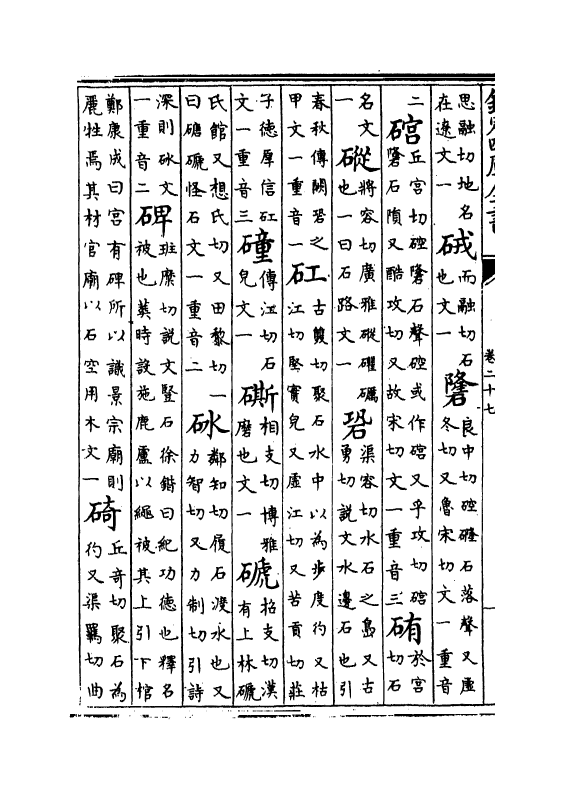 卷二十七
思融切地名在遼文一 䂆 而融切石也文一 䃧 良中切硿䃧石落聲又盧冬切又魯宋切文一重音
二 䂫 丘宮切硿䃧石聲硿或作䂫又乎攻切䂫䃧石隕又酷攻切又故宋切文一重音三 䂥 於宮切石
名文一 磫 將容切廣雅磫䂂礪也一曰石路文一 䂬 渠容切水石之島又古勇切說文水邊石也引
春秋傳闕䂬之甲文一重音一 矼 古雙切聚石水中以為步度彴又枯江切堅實皃又虛江切又苦貢切莊
子德厚信矼文一重音三 䃥 傳江切石皃文一 㯕 相支切博雅磨也文一 磃 招支切漢有上林磃
氏館又想氏切又田黎切一曰磄磃怪石文一重音二 砅 鄰知切履石渡水也又力智切又力制切引詩
深則砅文一重音二 碑 班糜切說文豎石徐鍇曰紀功德也釋名被也葬時設施鹿盧以繩被其上引下棺
鄭康成曰宮有碑所以識景宗廟則麗牲焉其材官廟以石空用木文一 碕 丘奇切聚石為彴又渠羈切曲